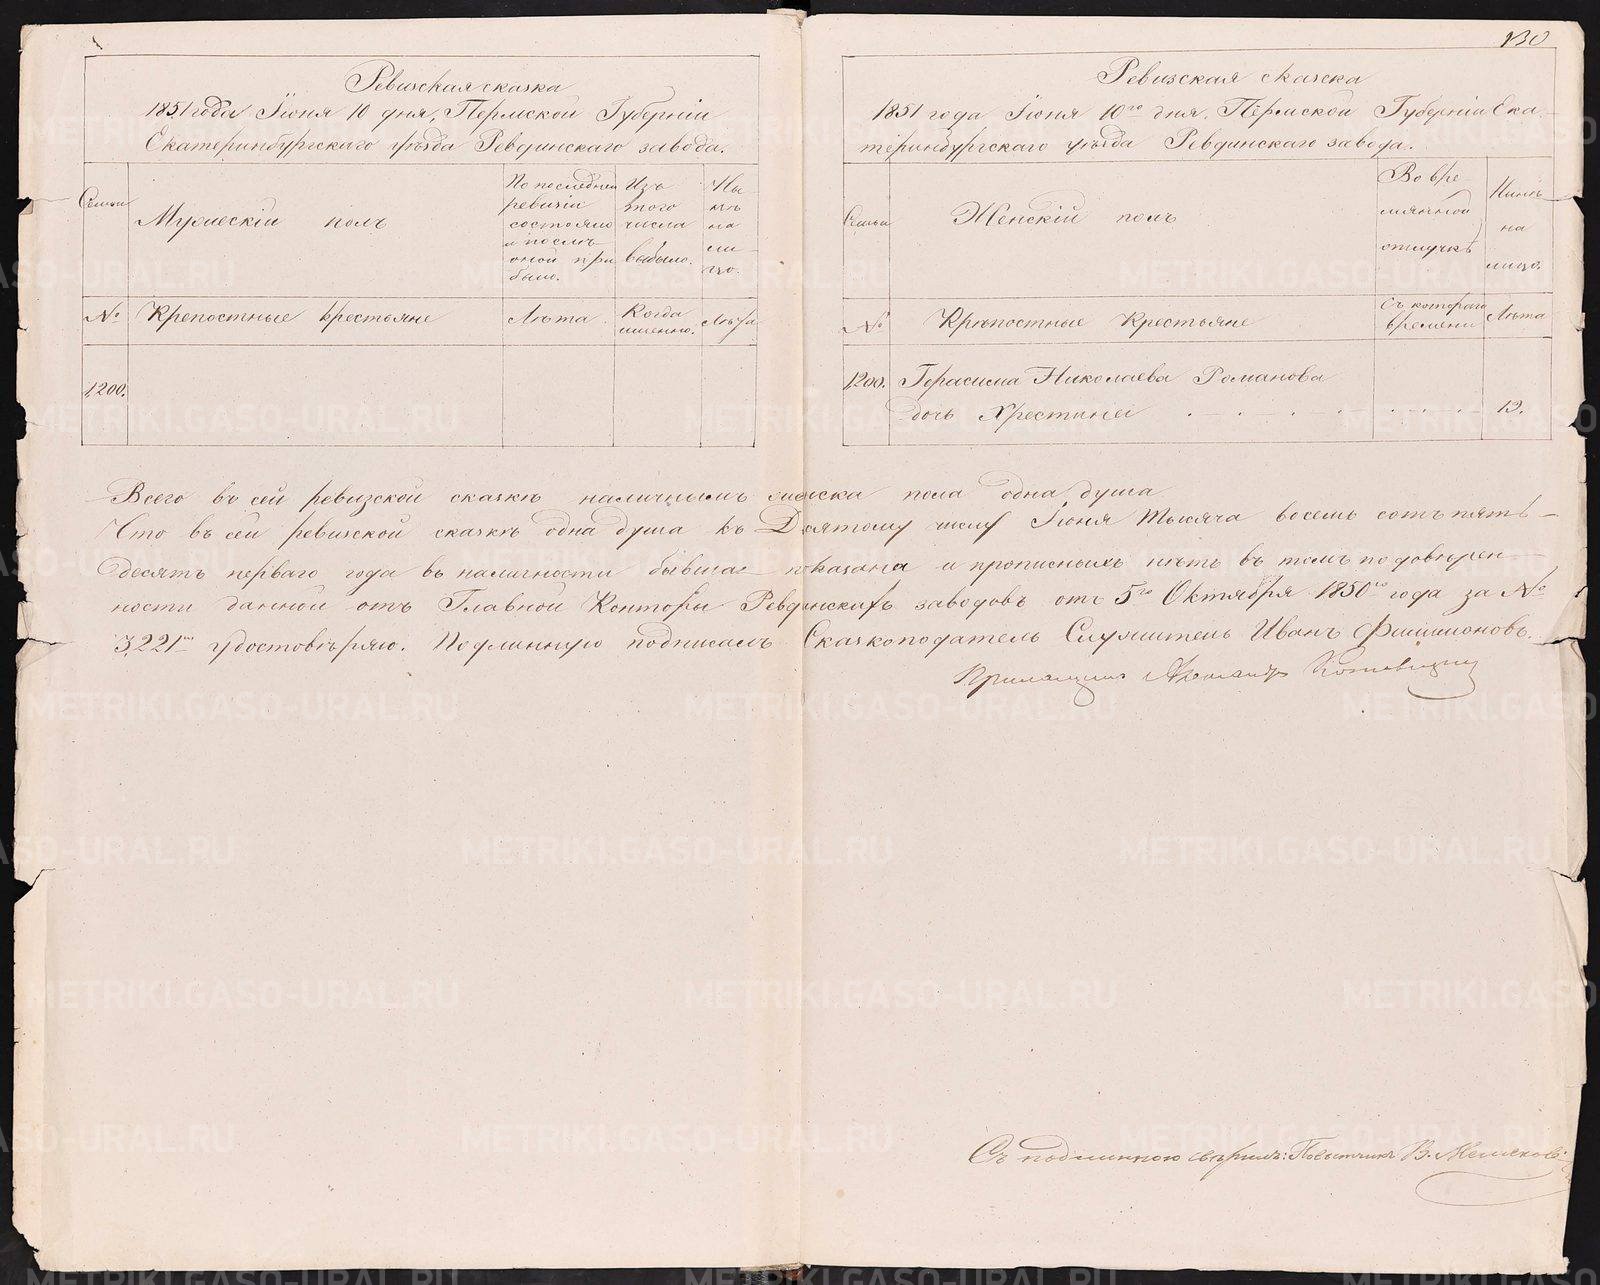 130
Ревизская сказка
1851 года Іюня 10 дня, Пермской Губерніи
Екатеринбургскаго уѣзда Ревдинскаго завода.
Семьи
Мужескій полъ
По последней
ревизіи
состояло
и послѣ
оной при
было.
Изъ
того
числа
выбыло.
Ны-
нѣ
на
ли-
цо.
№
Крепостные крестьяне
Лѣта
Когда
именно.
Лѣта
1200.
Ревизская сказка
1851 года Іюня 10го дня. Пермской Губерніи Ека-
теринбургскаго уѣзда Ревдинскаго завода.
Семьи
Женскій полъ
Во вре-
мянной
отлучкѣ
Нынѣ
на
лицо.
№
Крѣпостные Крестьяне
Съ котораго
времени
Лѣта
1200. Герасима Николаева Романова
дочь Хрестинея . . . . . . . . . 13.
Всего въ сей ревизской сказкѣ наличныхъ женска пола одна душа
Что въ сей ревизской сказкѣ одна душа къ Десятому числу Іюня тысяча восемь сотъ пять-
десятъ перваго года въ наличности бывшая показана и прописныхъ нѣтъ въ томъ по довѣрен-
ности данной отъ Главной Конторы Ревдинскихъ заводовъ отъ 5го Октября 1850го года за №
3221мъ удостовѣряю. Подлинную подписалъ Сказкоподатель Служитель Иванъ Филимоновъ.
Прикащикъ Александръ
Съ подлинною свѣрилъ: Повытчикъ В. Мешковъ
METRIKI.GASO-URAL.RU